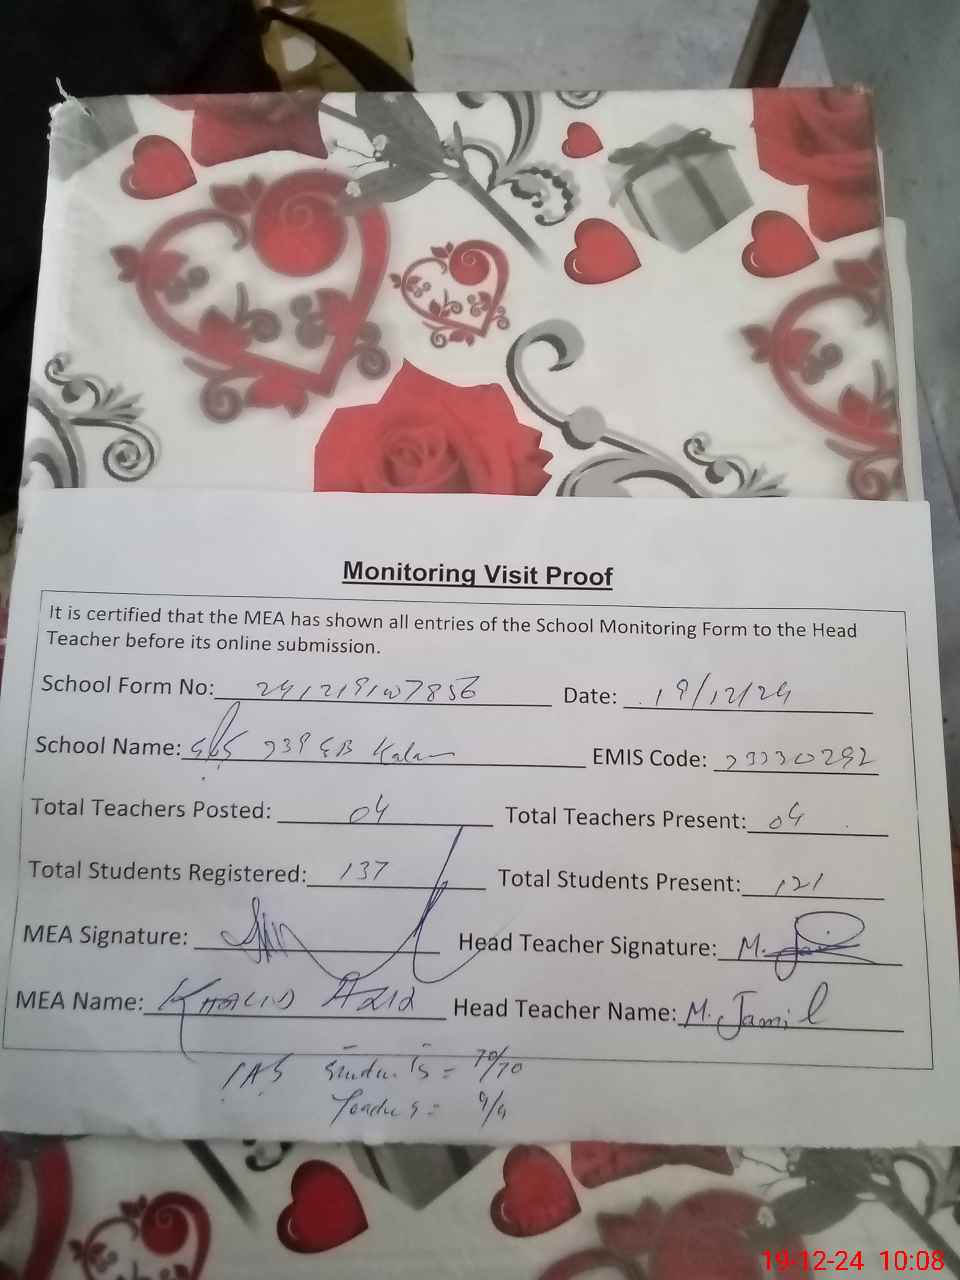 Monitoring Visit Proof
It is certified that the MEA has shown all entries of the School Monitoring Form to the Head
Teacher before its online submission.
School Form No: Date: 19/12/24
School Name: EB Kalan EMIS Code:
Total Teachers Posted: 04 Total Teachers Present: 04
Total Students Registered: 137 Total Students Present: 121
MEA Signature: Head Teacher Signature: M.
MEA Name: Khalid Aziz Head Teacher Name: M. Jamil
Students = 70/70
19-12-24 10:08